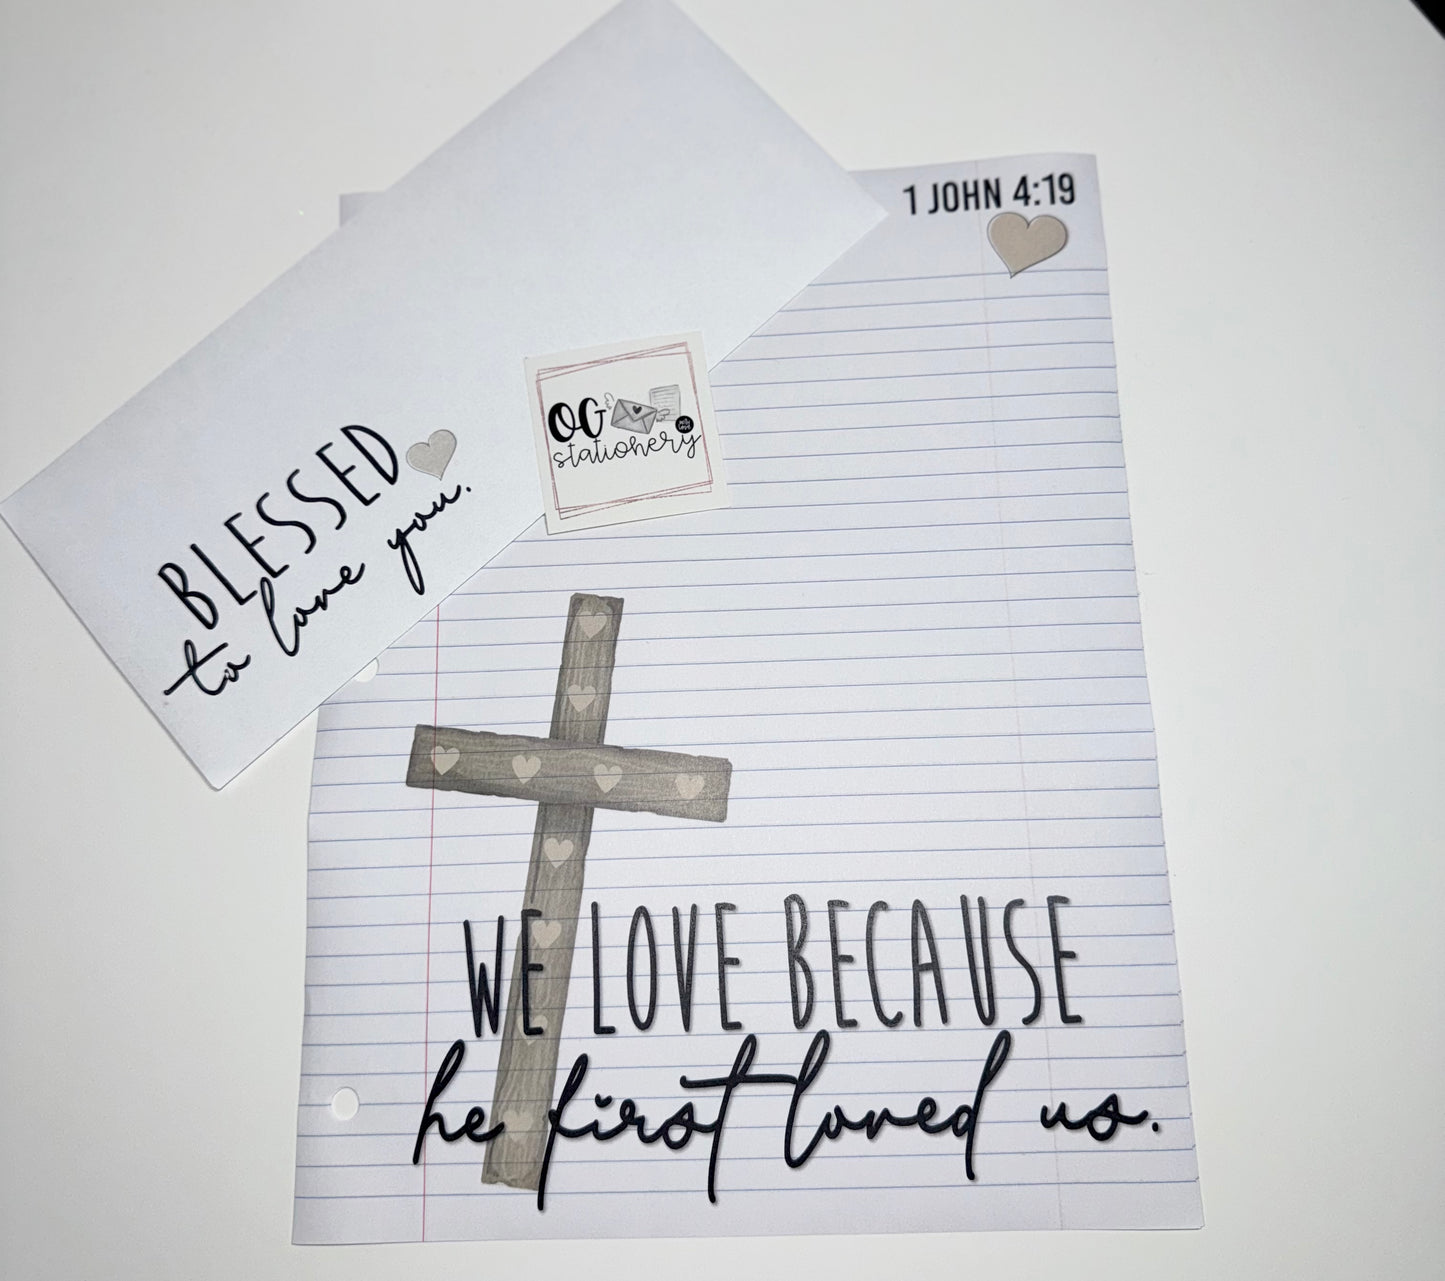 1 JOHN 4:19
BLESSED
to love you.
OG
stationery
WE LOVE BECAUSE
he first loved us.